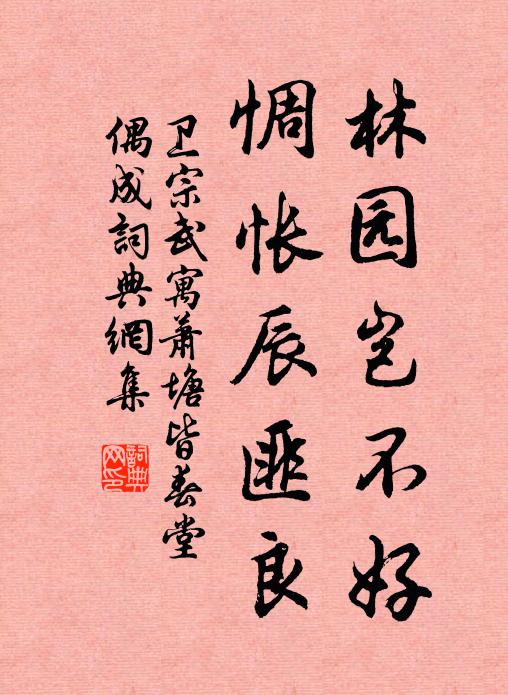 林园岂不好
惆怅辰匪良
卫宗武寓萧塘皆春堂
偶成詞典網集
詞典
网印